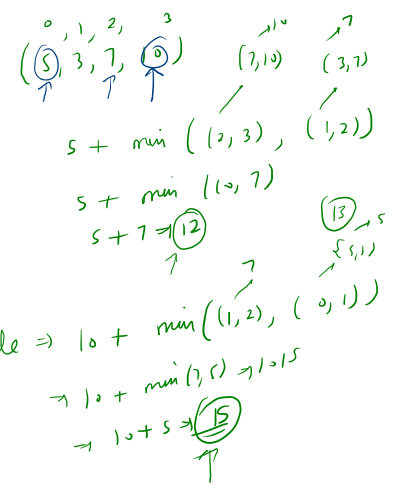 0, 1, 2, 3
(5, 3, 7, 10)
10 7
(7,10) (3,7)
5 + min ((2,3), (1,2))
5 + min (10, 7)
5 + 7 ⇒ 12
13
5
{5,1)
7
le ⇒ 10 + min((1,2), (0,1))
→ 10 + min(7,5) → 10 15
→ 10 + 5 → 15